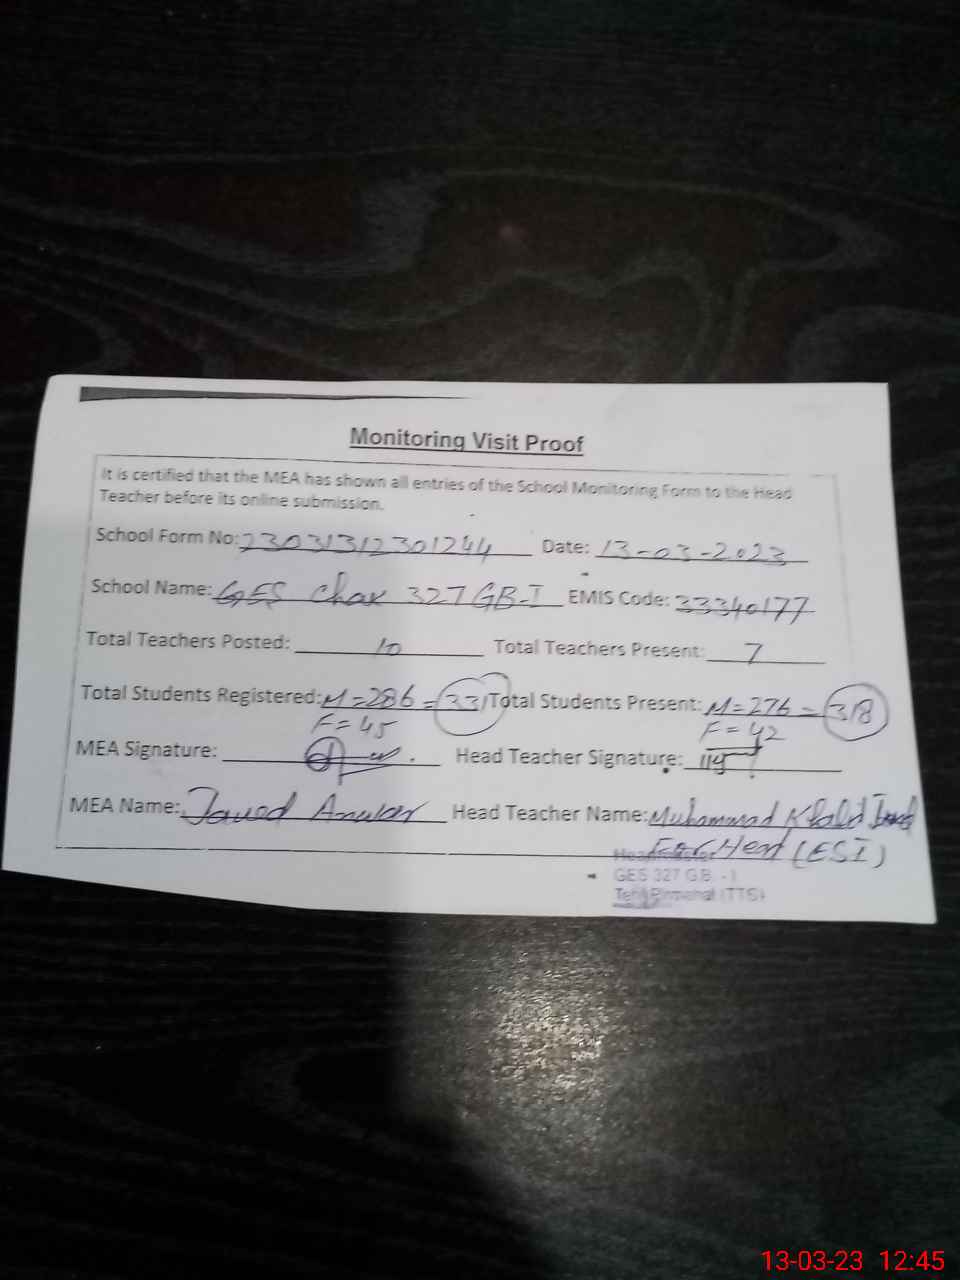 Monitoring Visit Proof
It is certified that the MEA has shown all entries of the School Monitoring Form to the Head
Teacher before its online submission.
School Form No: 23031312301244 Date: 13-03-2023
School Name: GES Chak 327 GB-I EMIS Code: 33340177
Total Teachers Posted: 10 Total Teachers Present: 7
Total Students Registered: M=286 = 331 Total Students Present: M=276 = 318
F=45 F=42
MEA Signature: Head Teacher Signature:
MEA Name: Javed Anwar Head Teacher Name: Muhammad Khalid
For Head (ESI)
GES 327 G.B. - I
(TTS)
13-03-23 12:45